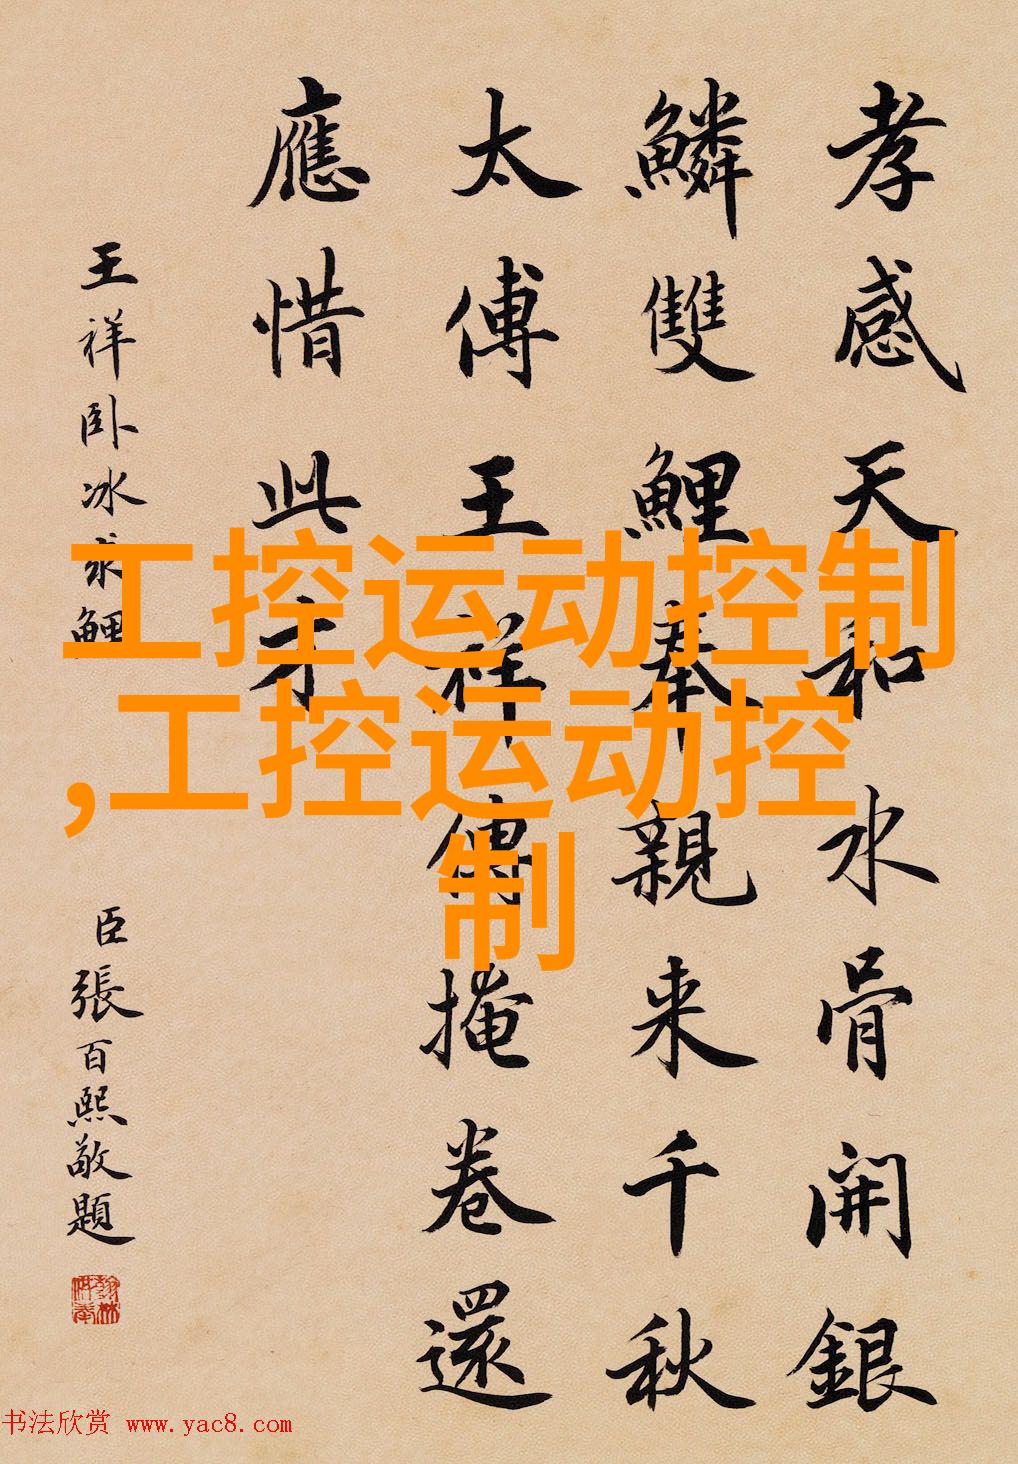 孝感天和水骨開銀
鱗雙鯉奉親来千秋
太傅王祥傳掩卷還
應惜此才
王祥卧冰求鯉
臣張百熙敬題
工控运动控制
,工控运动控
制
书法欣赏 www.yac8.com